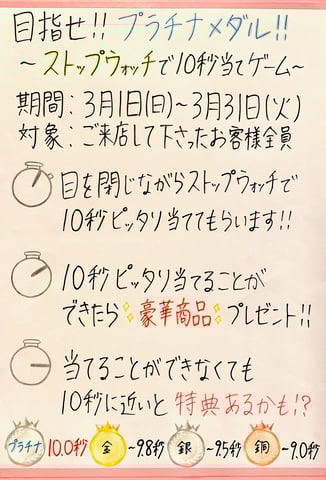 目指せ!! プラチナメダル!!
～ストップウォッチで10秒当てゲーム～
期間：3月1日(日)～3月31日(火)
対象：ご来店して下さったお客様全員
目を閉じながらストップウォッチで
10秒ピッタリ当ててもらいます!!
10秒ピッタリ当てることが
できたら豪華商品プレゼント!!
当てることができなくても
10秒に近いと特典あるかも!?
プラチナ 10.0秒 金 ～9.8秒 銀 ～9.5秒 銅 ～9.0秒